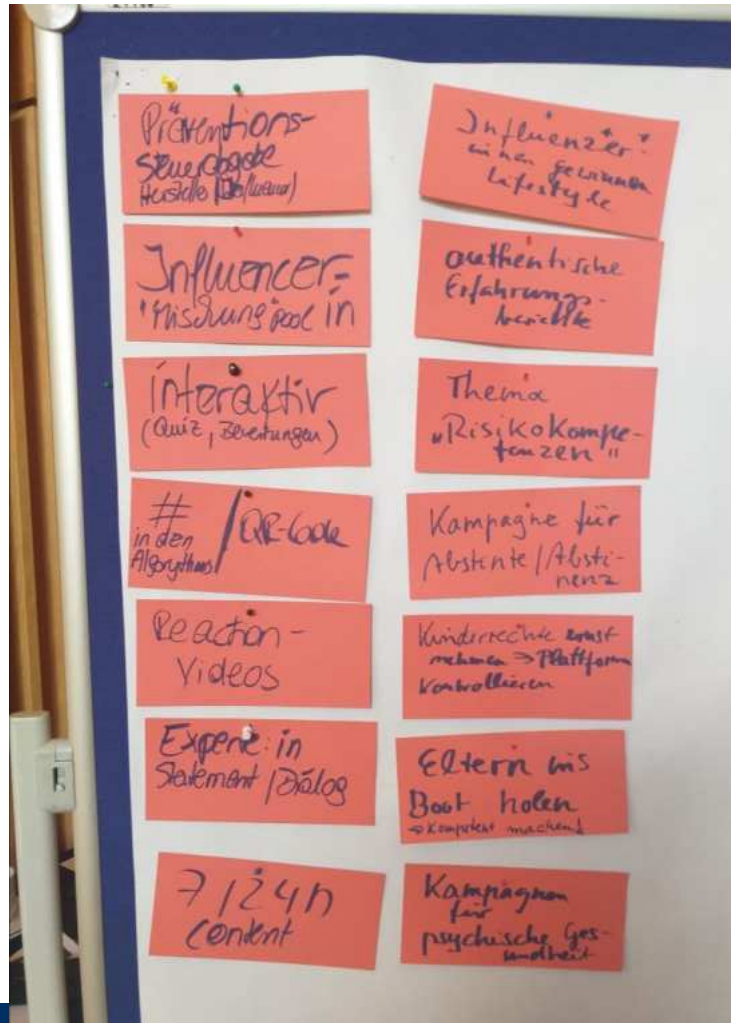 Präventions-
steuerabgabe
Hersteller (Influencer)
Influencer=
"Mischung" pool in
interaktiv
(Quiz, Bewertungen)
# / QR-Code
in den
Algorythmus
Reaction-
Videos
Experte:in
Statement / Dialog
7/24h
content
Influenzer:
innen gewinnen
Lifestyle
authentische
Erfahrungs-
berichte
Thema
"Risikokompe-
tenzen"
Kampagne für
Abstinente / Absti-
nenz
Kinderrechte ernst
nehmen => Plattform
kontrollieren
Eltern ins
Boot holen
-> kompetent machen!
Kampagnen
für
psychische Ges-
undheit